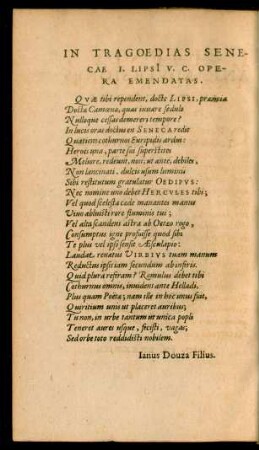 IN TRAGOEDIAS SENE-
CAE I. LIPSI V. C. OPE-
RA EMENDATAS.
QVÆ tibi rependent, docte LIPSI, præmia
Docta Camœnæ, quas iuuare sedulo
Nulloque cessas demereri tempore?
In lucis oras doctus en SENECA redit
Quatiens cothurnos Euripidis ardui:
Heroes una, pars eius superstites
Meliore, redeunt, non, ut ante, debiles,
Non lancinati, dulcis usum luminis
Sibi restitutum gratulatur OEDIPVS:
Nec nomine uno debet HERCVLES tibi;
Vel quod scelesta cæde manantes manus
Vino abluisti rore fluminis tui;
Vel alta scandens astra ab Oetæo rogo,
Consumptus igne profuisse quod sibi
Te plus vel ipse sense Æsculapio.
Laudat renatus VIRBIVS tuam manum
Reductus ipsetiam secundum ab inferis.
Quid plura refiram? Romulus debet tibi
Cothurnus omnis, inuident ante Helladi.
Plus quam Poëta; nam ille en hic unus fuit,
Quiritium unis ut placeret auribus;
Tu non, in urbe tantum ut unica populi
Teneret aures usque, fecisti, vagas;
Sed orbe toto reddidisti nobilem.
Ianus Douza Filius.